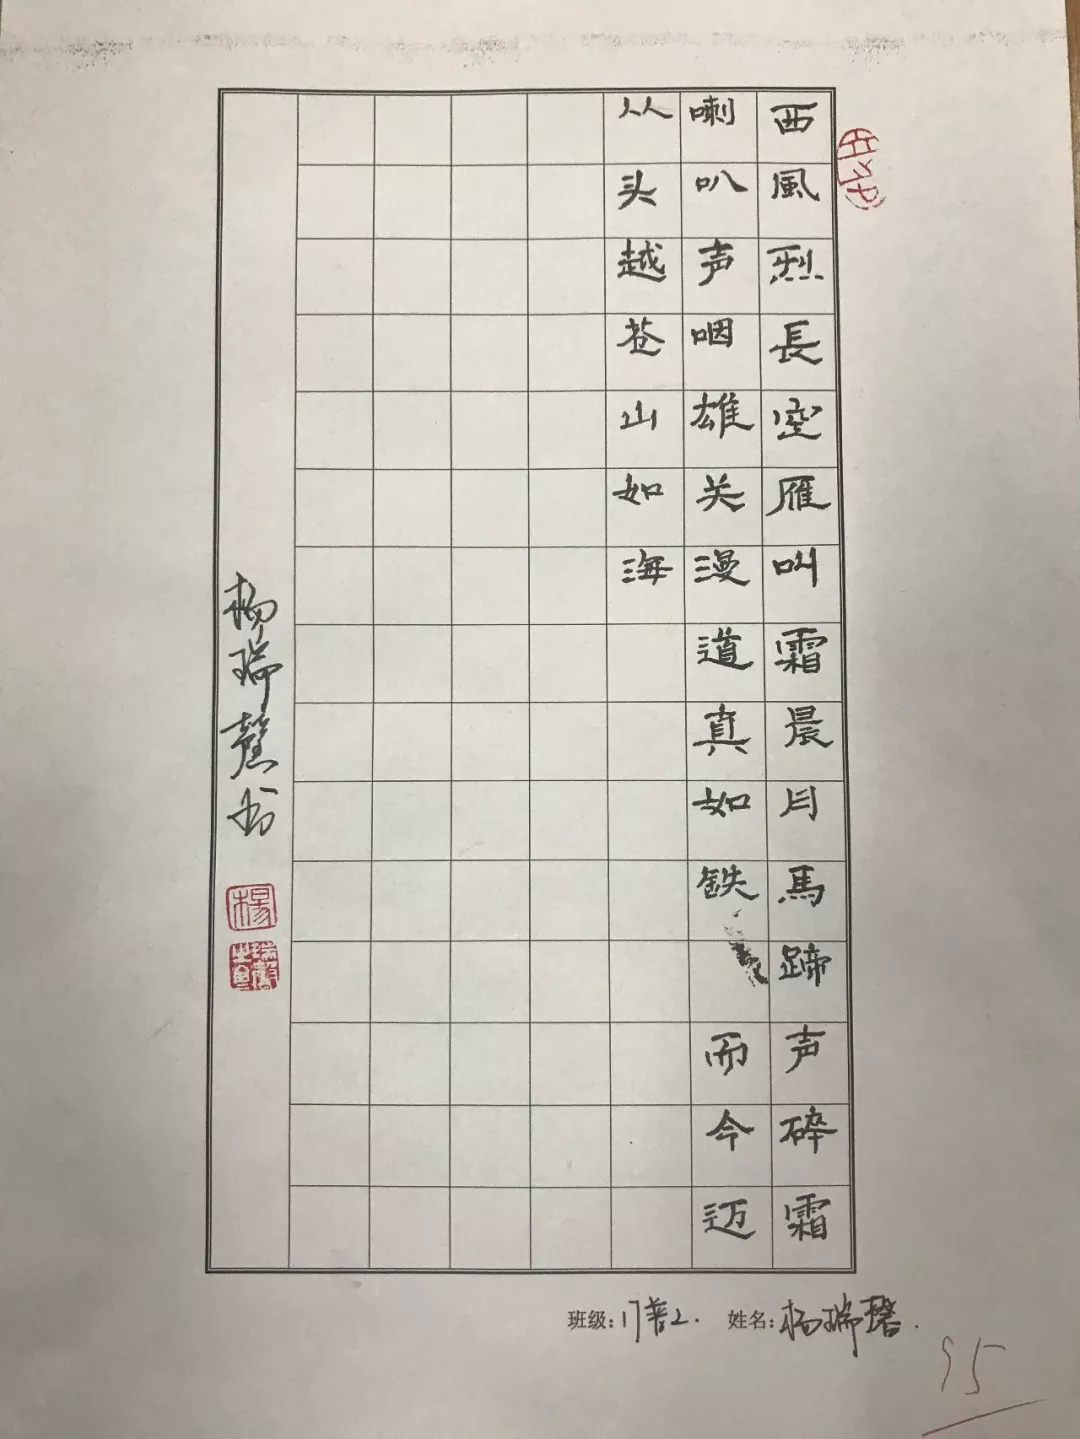 西風烈長空雁叫霜晨月馬蹄声碎霜
喇叭声咽雄关漫道真如鉄而今迈
从头越苍山如海
杨瑞书
杨
班级: 17普2. 姓名: 杨瑞
95